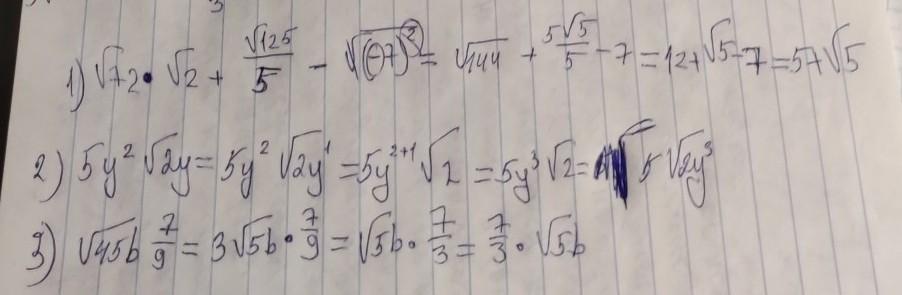 1) √72 • √2 + √125/5 - √(-7)² = √144 + 5√5/5 - 7 = 12 + √5 - 7 = 5+√5
2) 5y² √2y = 5y² √2y¹ = 5y²⁺¹ √2 = 5y³ √2 = 5 √2y³
3) √45b 7/9 = 3√5b • 7/9 = √5b • 7/3 = 7/3 • √5b